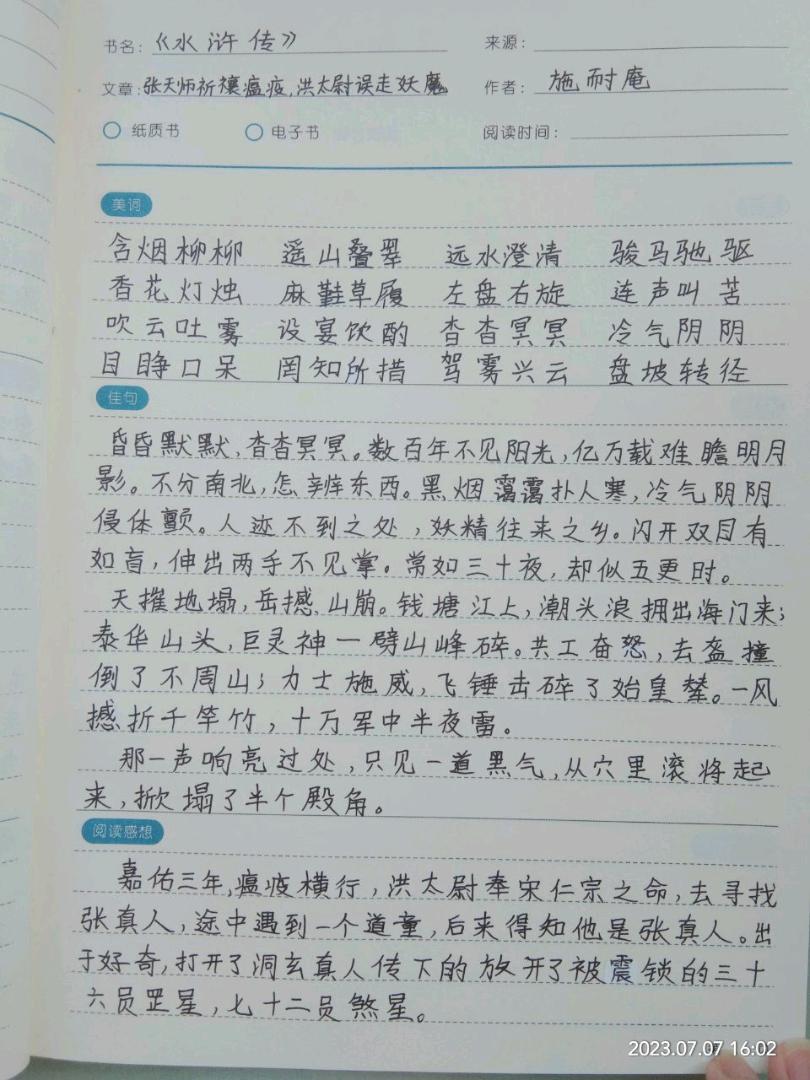 书名:《水浒传》 来源:
文章:张天师祈禳瘟疫,洪太尉误走妖魔 作者: 施耐庵
纸质书 电子书 阅读时间:
美词
含烟柳柳 遥山叠翠 远水澄清 骏马驰驱
香花灯烛 麻鞋草履 左盘右旋 连声叫苦
吹云吐雾 设宴饮酌 杳杳冥冥 冷气阴阴
目睁口呆 罔知所措 驾雾兴云 盘坡转径
佳句
昏昏默默,杳杳冥冥。数百年不见阳光,亿万载难瞻明月
影。不分南北,怎辨东西。黑烟霭霭扑人寒,冷气阴阴
侵体颤。人迹不到之处,妖精往来之乡。闪开双目有
如盲,伸出两手不见掌。常如三十夜,却似五更时。
天摧地塌,岳撼山崩。钱塘江上,潮头浪拥出海门来;
泰华山头,巨灵神一劈山峰碎。共工奋怒,去盔撞
倒了不周山;力士施威,飞锤击碎了始皇辇。一风
撼折千竿竹,十万军中半夜雷。
那一声响亮过处,只见一道黑气,从穴里滚将起
来,掀塌了半个殿角。
阅读感想
嘉佑三年,瘟疫横行,洪太尉奉宋仁宗之命,去寻找
张真人,途中遇到一个道童,后来得知他是张真人。出
于好奇,打开了洞玄真人传下的放开了被震锁的三十
六员罡星,七十二员煞星。
2023.07.07 16:02